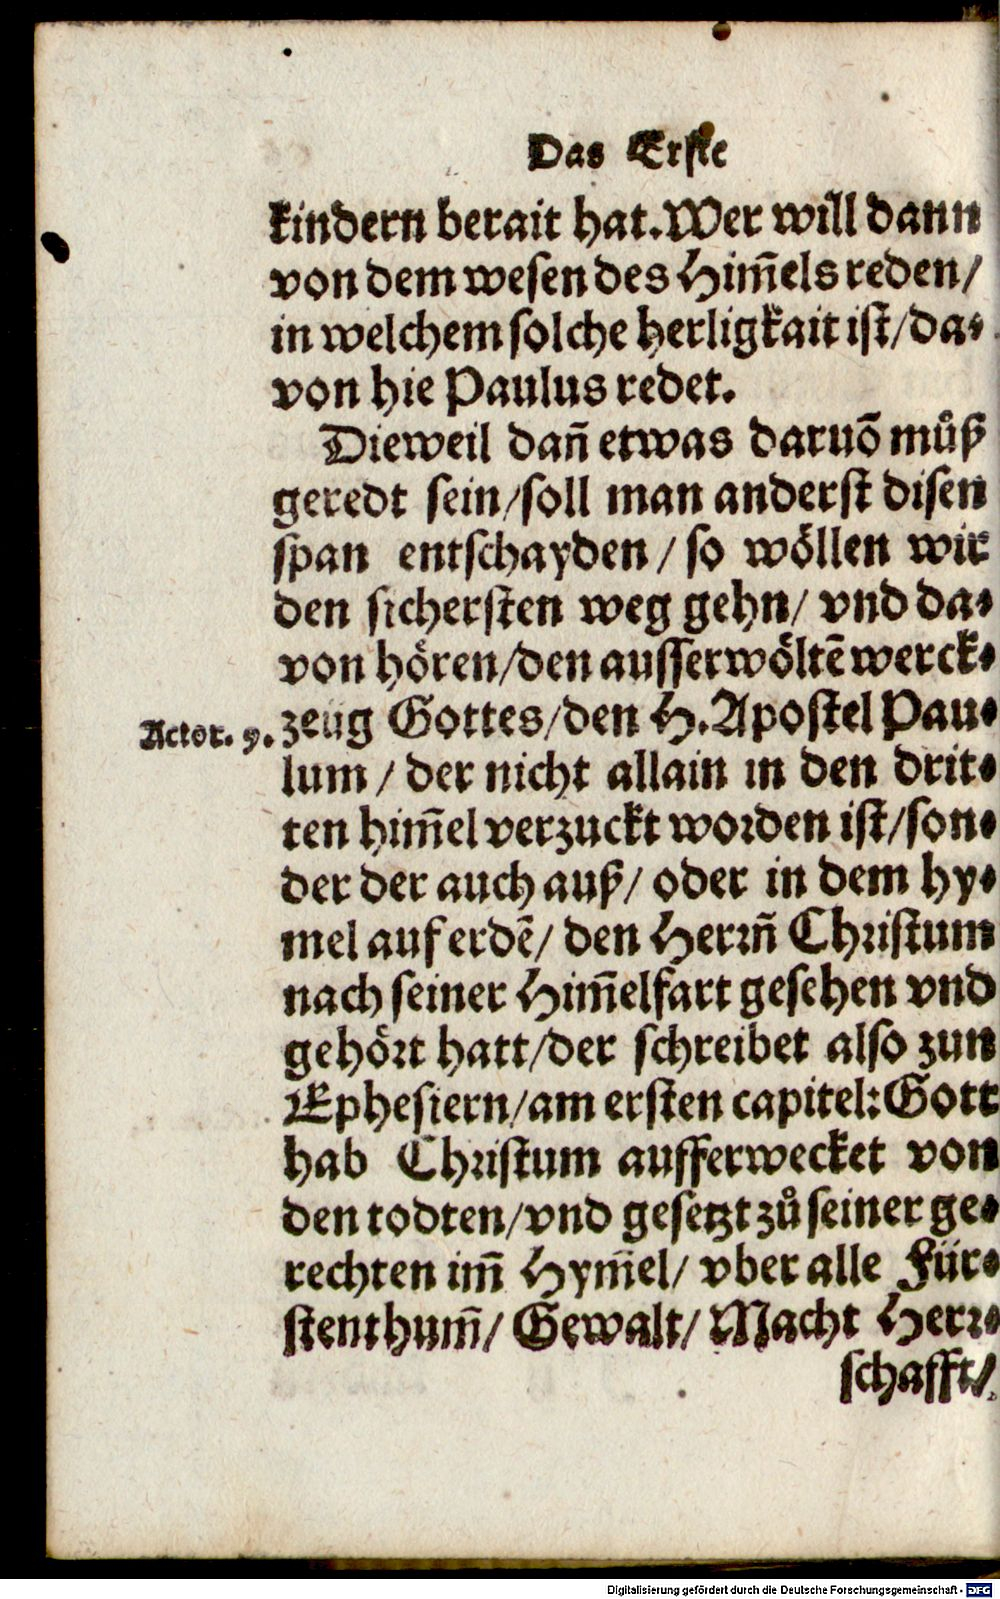 Das Erste
kindern berait hat. Wer will dann
von dem wesen des Him̃els reden/
in welchem solche herligkait ist/ da-
von hie Paulus redet.
Dieweil dañ etwas daruõ můß
geredt sein/ soll man anderst disen
span entschayden/ so wöllen wir
den sichersten weg gehn/ vnd da-
von hören/ den ausserwöltẽ werck-
Actor. 9.
zeug Gottes/ den H. Apostel Pau-
lum/ der nicht allain in den drit-
ten him̃el verzuckt worden ist/ son-
der der auch auß/ oder in dem hy-
mel auf erdẽ/ den Herrñ Christum
nach seiner Him̃elfart gesehen vnd
gehört hatt/ der schreibet also zun
Ephesiern/ am ersten capitel: Gott
hab Christum aufferwecket von
den todten/ vnd gesetzt zů seiner ge-
rechten im̃ Hym̃el/ vber alle Für-
stenthum̃/ Gewalt/ Macht Herr-
schafft/
Digitalisierung gefördert durch die Deutsche Forschungsgemeinschaft - DFG